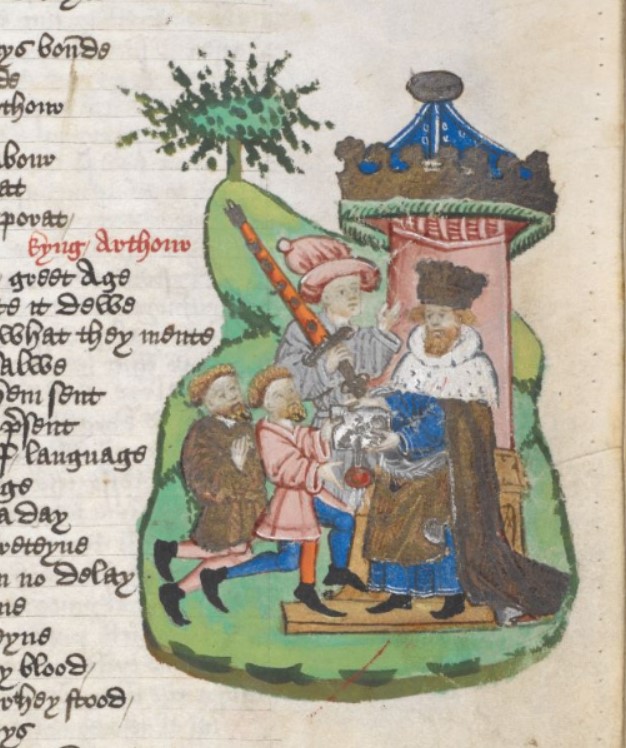 ys bonde
de
thour
bour
at
porat
kyng Arthour
greet Age
te it dewe
what they mente
salwe
hem sent
p̄sent
language
ge
a day
reteyne
n no delay
ne
eyne
y blood
they stood
ys